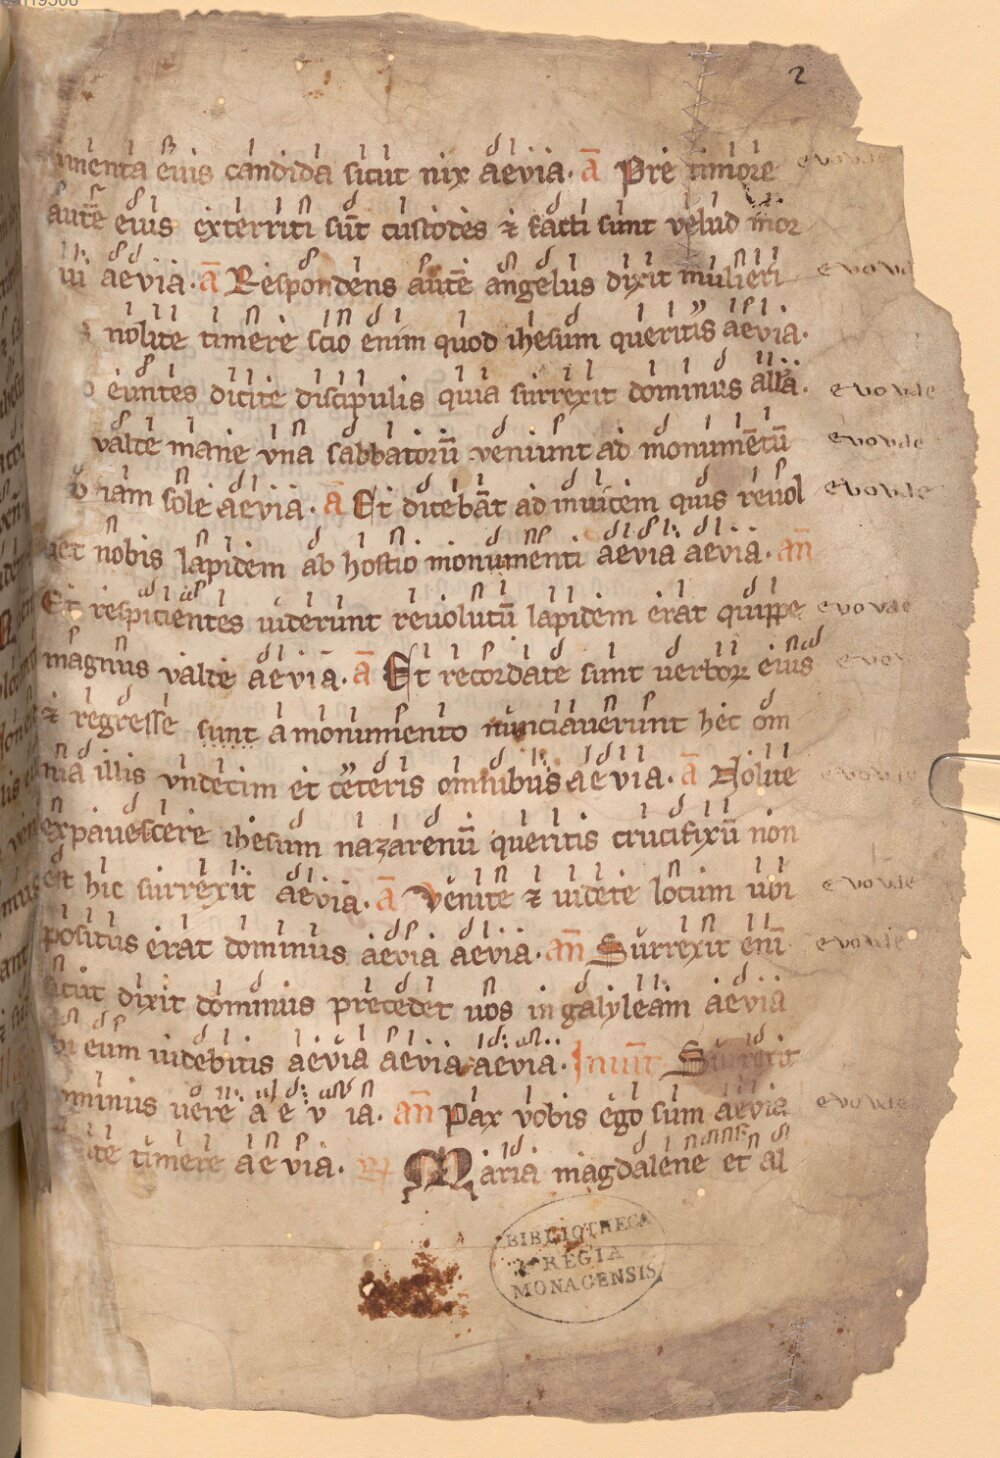 2
menta eius candida sicut nix aevia. ā Pre timore
autē eius exterriti sūt custodes ⁊ facti sunt velud mor
tui aevia. ā Respondens autē angelus dixit mulieri
nolite timere scio enim quod ihesum queritis aevia. evovae
euntes dicite discipulis quia surrexit dominus allā. evovae
valde mane vna sabbatorū veniunt ad monumētū evovae
iam sole aevia. ā Et dicebāt ad inuicem quis reuol evovae
uet nobis lapidem ab hostio monumenti aevia aevia. an̄
Et respicientes uiderunt reuolutū lapidem erat quippe evovae
magnus valde aevia. ā Et recordate sunt uerborꝝ eius
⁊ regresse sunt a monumento nunciauerunt hec om
nia illis vndecim et ceteris omnibus aevia. ā Nolite evovae
expauescere ihesum nazarenū queritis crucifixū non
est hic surrexit aevia. ā Venite ⁊ uidete locum ubi evovae
positus erat dominus aevia aevia. an̄ Surrexit enī evovae
sicut dixit dominus precedet uos in galyleam aevia
ibi eum uidebitis aevia aevia aevia. Inuit̄ Surrexit
ominus uere a e v ia. an̄ Pax vobis ego sum aevia evovae
ite timere aevia. Maria magdalene et al
BIBLIOTHECA
REGIA
MONACENSIS